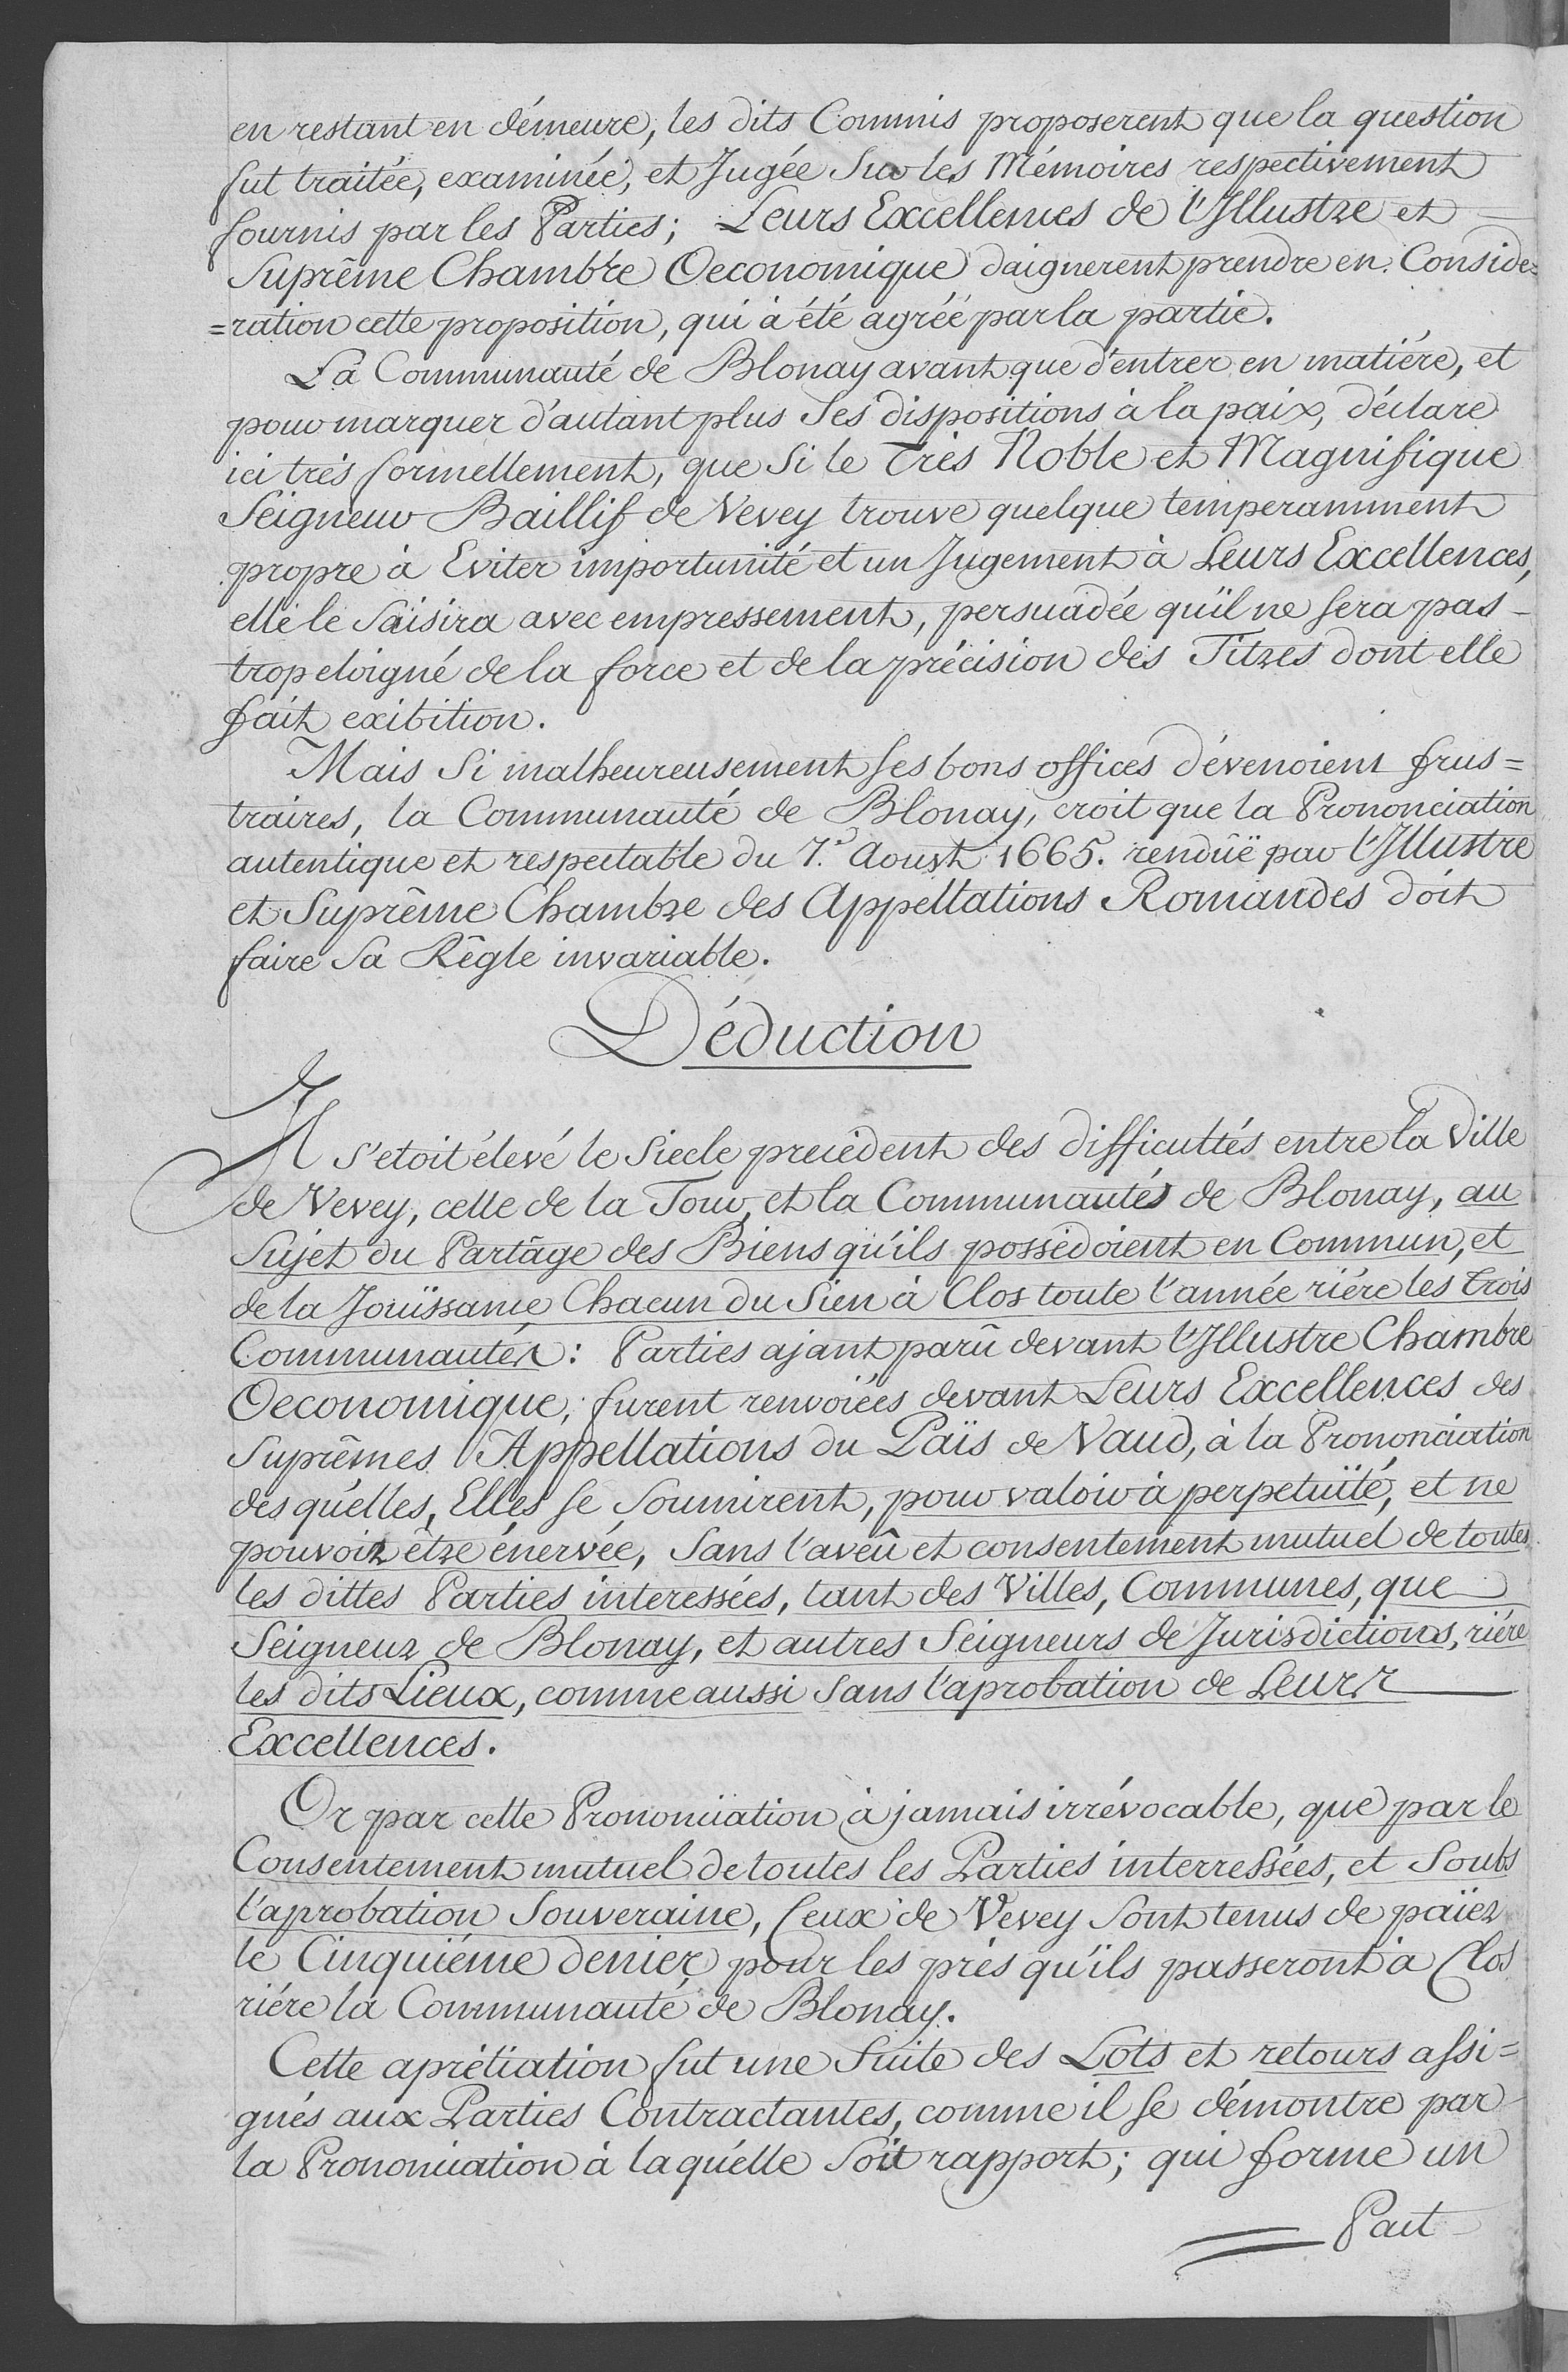 en restant en démeure, les dits Commis proposerent que la question
fut traitée, examinée, et Jugée Sur les Mémoires respectivement
fournis par les Parties; Leurs Excellences de l'Jllustre et
Suprême Chambre Oeconomique daignerent prendre en Conside=
=ration cette proposition, qui à été agréé par la partie.
La Communauté de Blonay avant que d'entrer en matiére, et
pour marquer d'autant plus Ses dispositions à la paix, déclare
ici trés formellement, que Si le Trés Noble et Magnifique
Seigneur Baillif de Vevey trouve quelque temperamment
propre à Eviter importunité et un Jugement à Leurs Excellences,
elle le Saisira avec empressement, persuadée qu'il ne sera pas
trop eloigné de la force et de la précision des Titres dont elle
fait exibition.
Mais Si malheureusement ses bons offices dévenoient frus=
traires, la Communauté de Blonay, croit que la Prononciation
autentique et respectable du 7.e Aoust 1665. rendüe par l'Jllustre
et Suprême Chambre des Appellations Romandes doit
faire Sa Rêgle invariable.
Déduction
Il s'etoit élevé le Siecle precédent des difficultés entre la Ville
de Vevey, celle de la Tour, et la Communautés de Blonay, au
Sujet du Partâge des Biens qu'ils possédoient en Commun, et
de la Jouïssance Chacun du Sien à Clos toute l'année riére les trois
Communautés: Parties ajant parû devant l'Jllustre Chambre
Oeconomique, furent renvoiées devant Leurs Excellences des
Suprêmes Appellations du Païs de Vaud, à la Prononciation
des quélles, Elles se Soumirent, pour valoir à perpetuïté, et ne
pouvoir être énervée, Sans l'aveû et consentement mutuel de toutes
les dittes Parties interessées, tant des Villes, Communes, que
Seigneur de Blonay, et autres Seigneurs de Jurisdictions, riére
les dits Lieux, comme aussi Sans l'aprobation de Leurs
Excellences.
Or par cette Prononciation à jamais irrévocable, que par le
Consentement mutuel de toutes les Parties interressées, et Soubs
l'aprobation Souveraine, Ceux de Vevey Sont tenus de païer
le Cinquiéme denier pour les prés qu'ils passeront à Clos
riére la Communauté de Blonay.
Cette aprétiation fut une Suite des Lots et retours assi=
gnés aux Parties Contractantes, comme il se démontre par
la Prononciation à laquélle Soit rapport; qui forme un
Pact